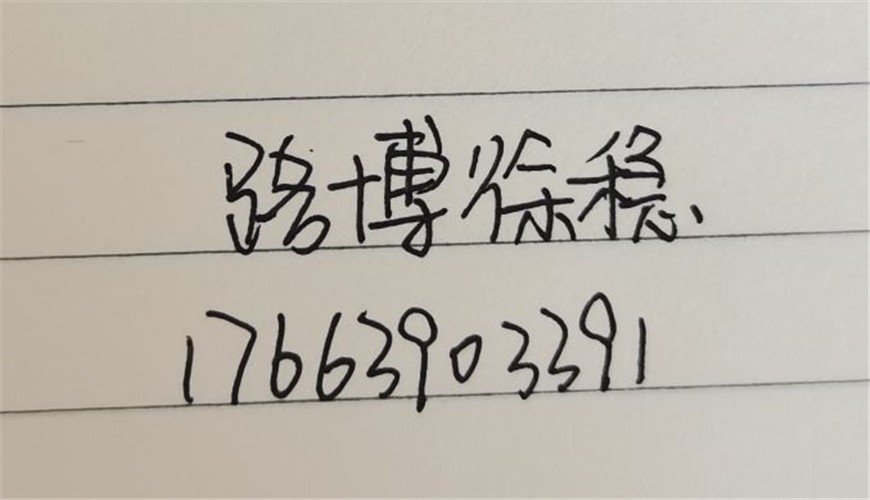 路博徐稳
17663903391